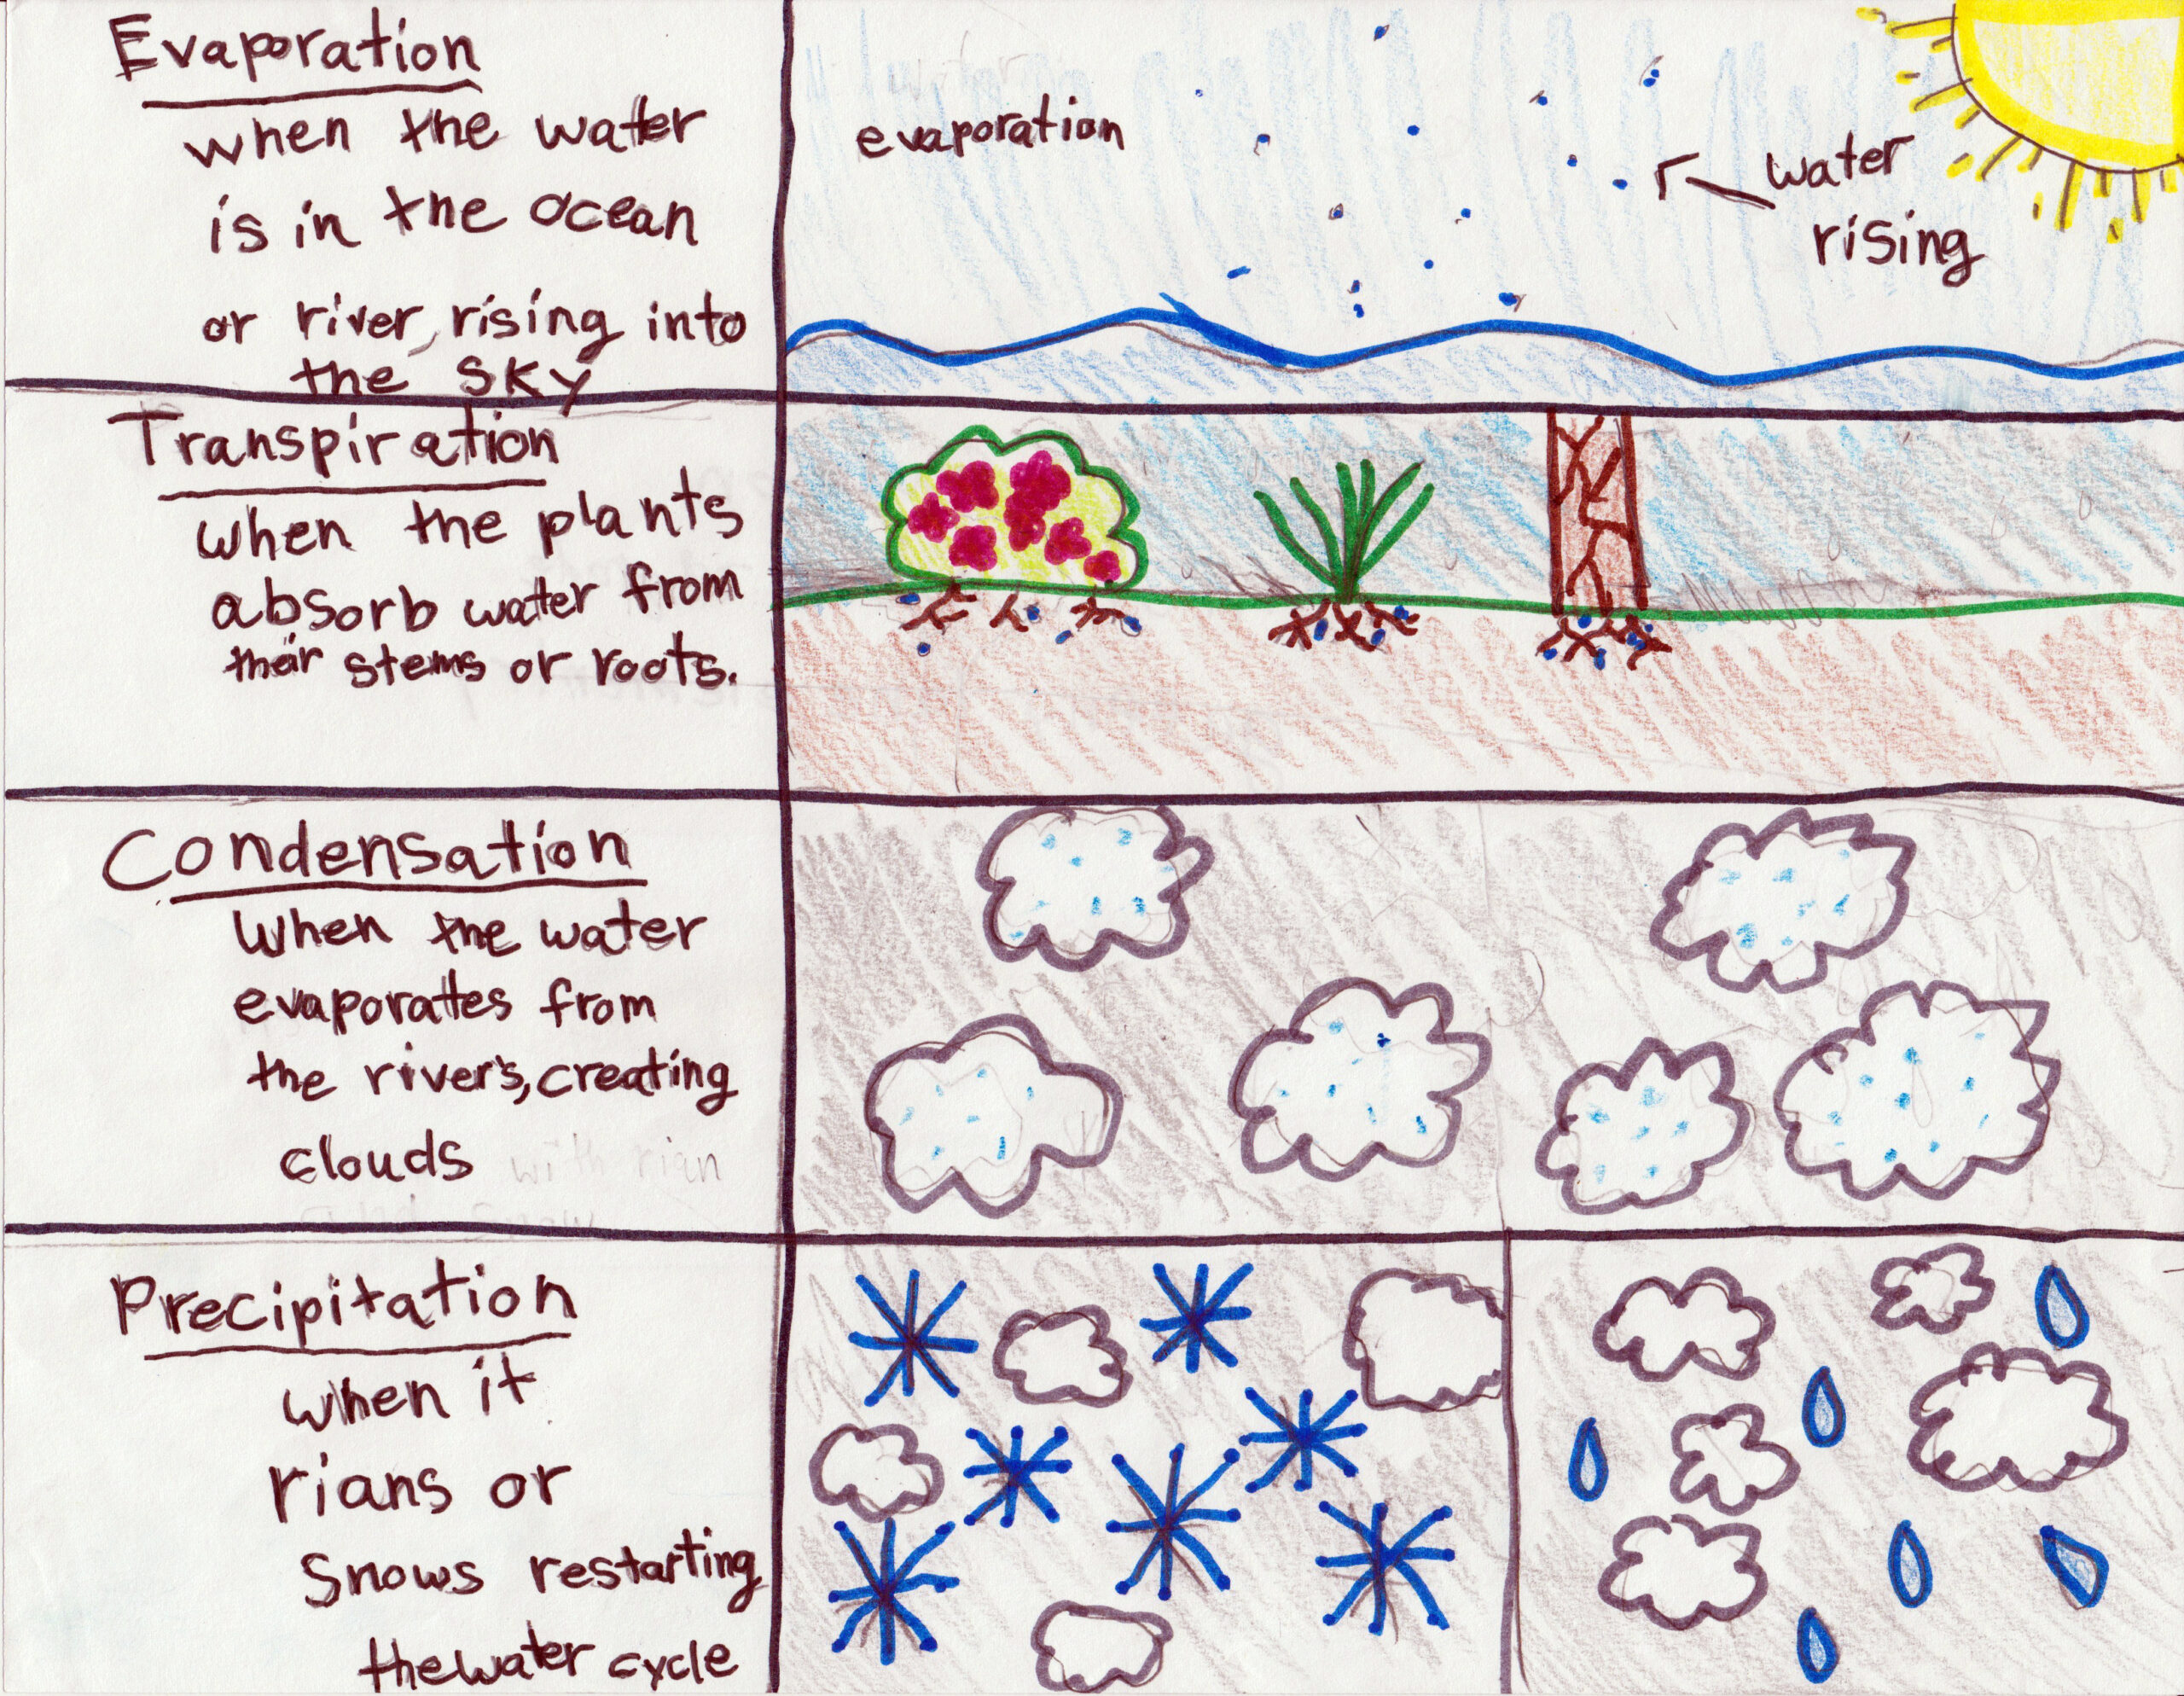 Evaporation
when the water
is in the ocean
or river, rising into
the sky
evaporation
water
rising
Transpiration
when the plants
absorb water from
their stems or roots.
Condensation
When the water
evaporates from
the river's, creating
clouds
with rian
Precipitation
when it
rians or
Snows restarting
the water cycle